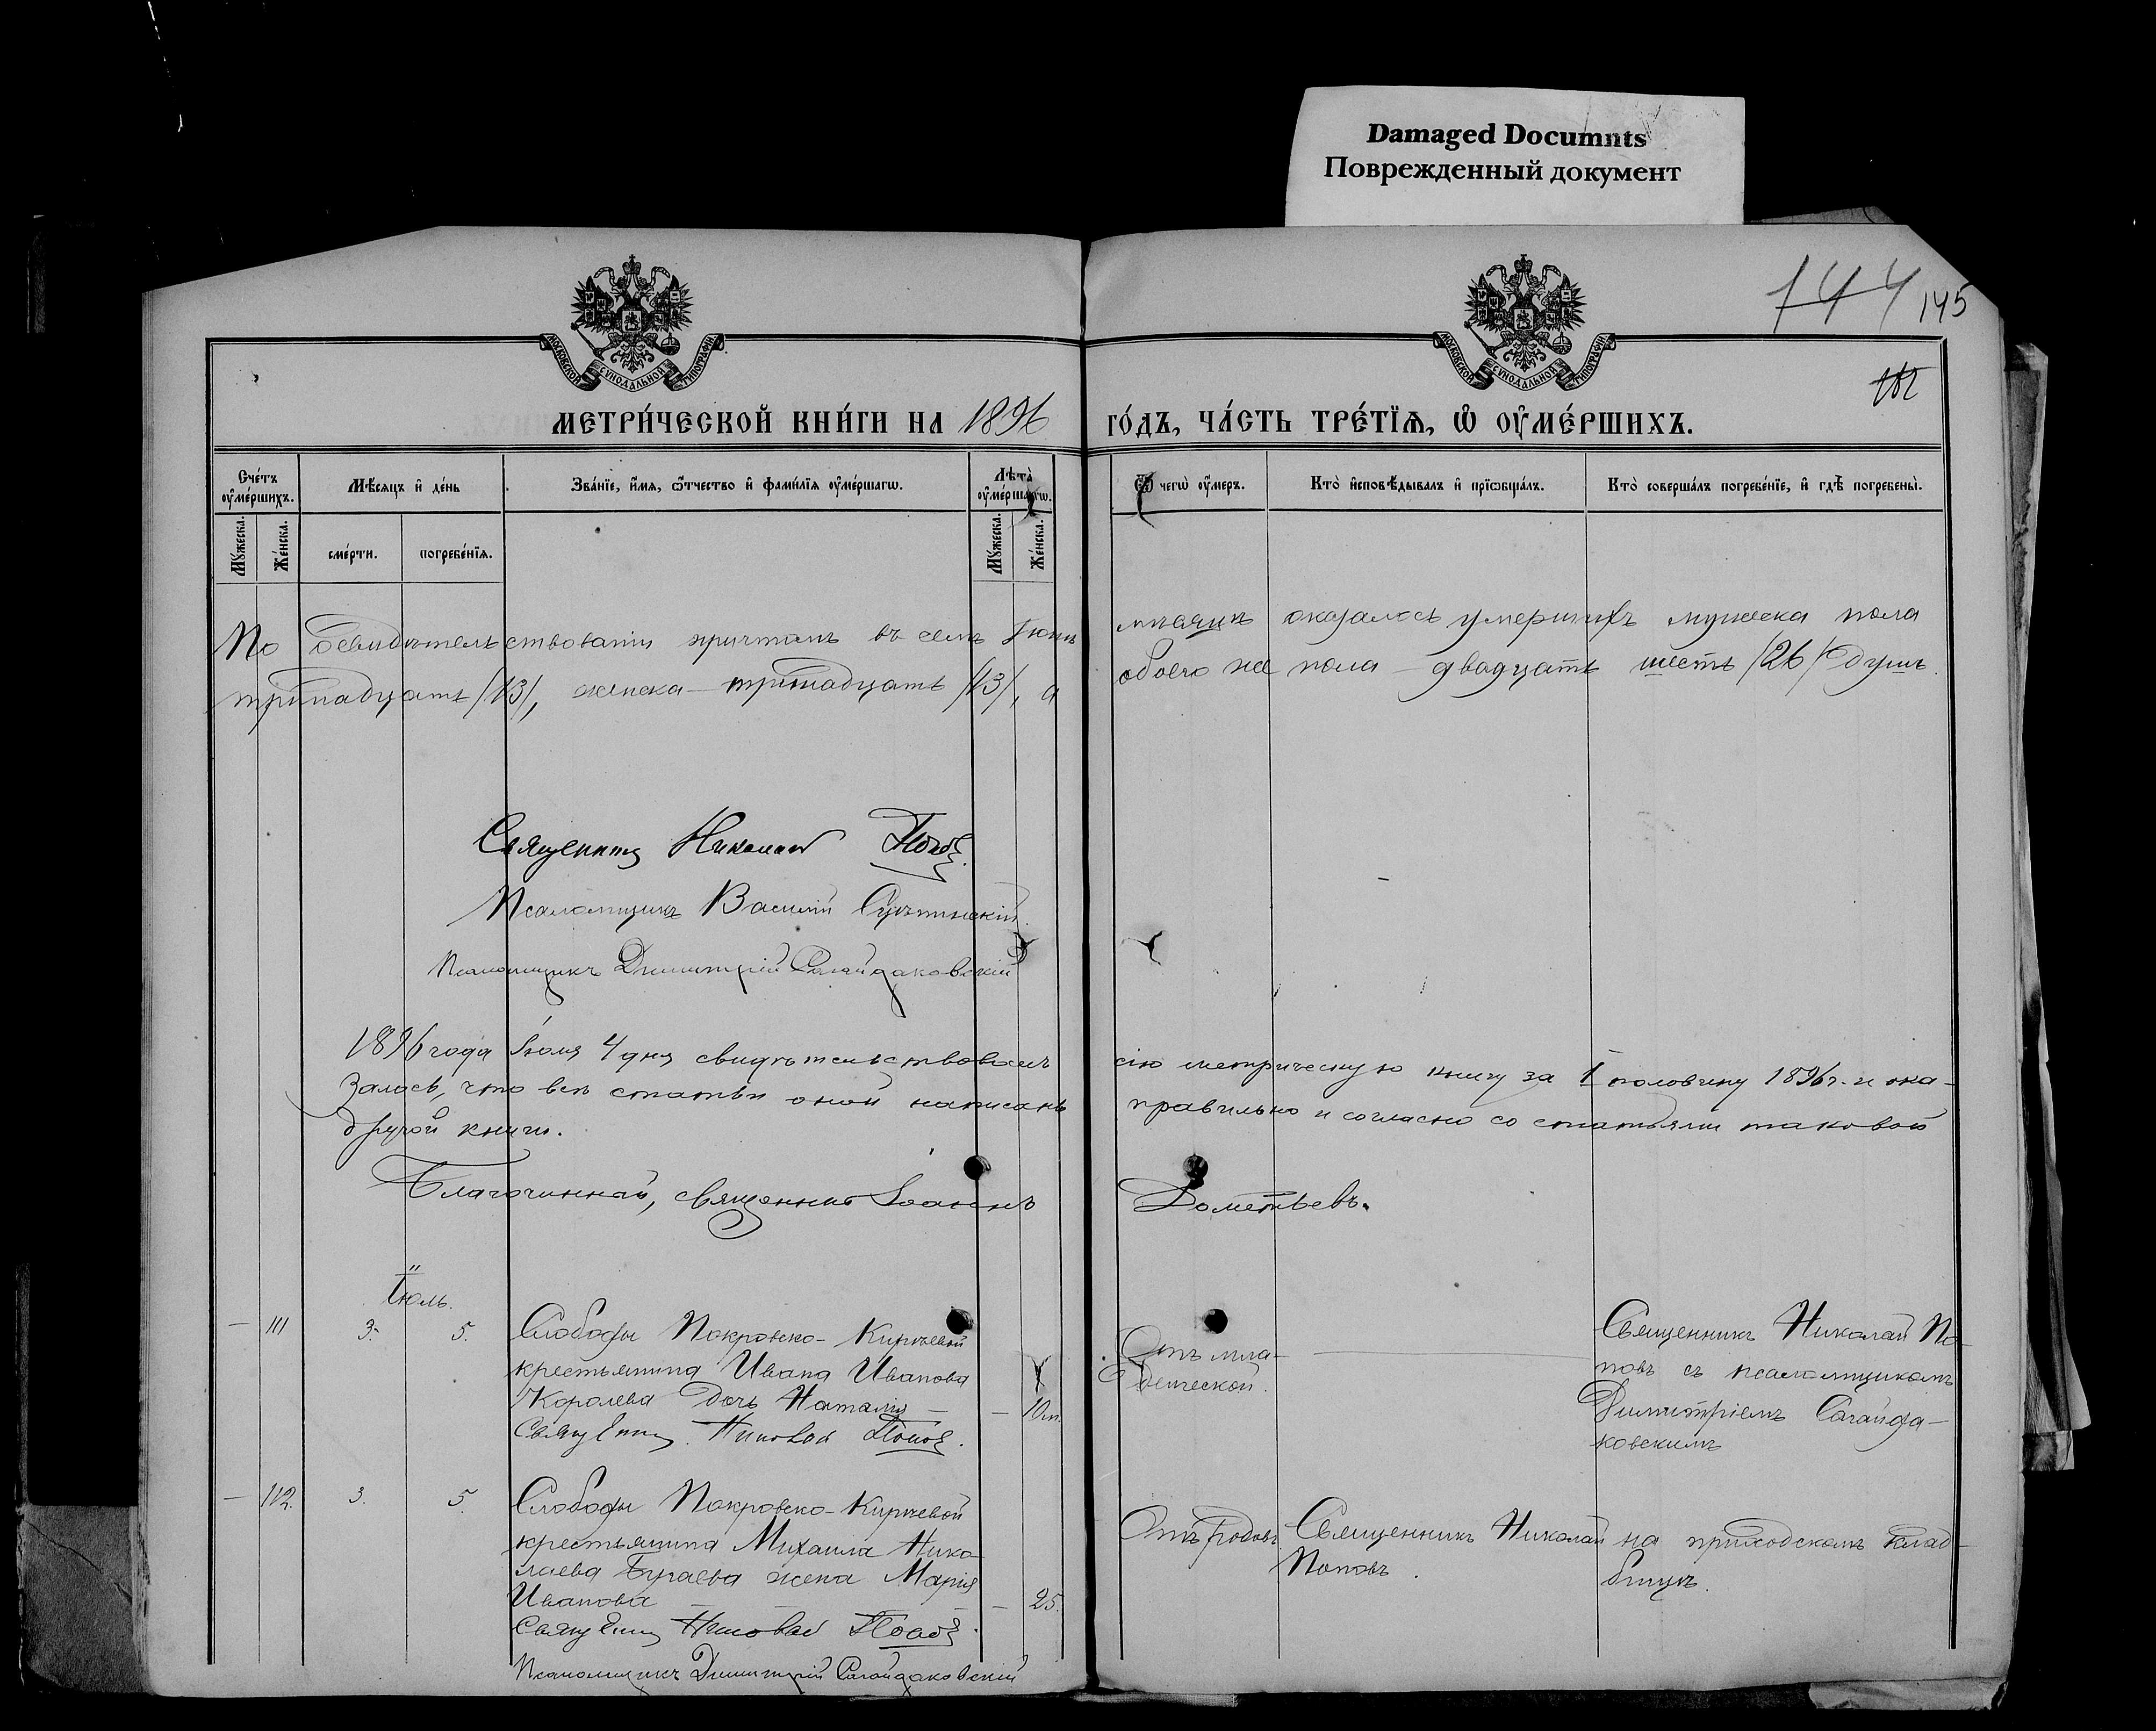 Damaged Documnts
Поврежденный документ
144 145
МОСКОВСКОЙ СѴНОДАЛЬНОЙ ТИПОГРАФІИ
МОСКОВСКОЙ СѴНОДАЛЬНОЙ ТИПОГРАФІИ
МЕТРИ́ЧЕСКОЙ КНИ́ГИ НА 1896 ГО́ДЪ, ЧА́СТЬ ТРЕ́ТЇѦ, Ѽ ОУ҆МЕ́РШИХЪ.
Сче́тъ оу҆ме́ршихъ.
Мѣсяцъ и҆ де́нь
Зва́нїе, и҆́мя, ѻ҆́тчество и҆ фами́лїя оу҆ме́ршагѡ.
Лѣта̀ оу҆ме́ршагѡ.
Ѿ чегѡ̀ оу҆́меръ.
Кто̀ и҆сповѣ́дывалъ и҆ прїѡбща́лъ.
Кто̀ соверша́лъ погребе́нїе, и҆ гдѣ̀ погребены̀.
Мꙋ́жеска. Же́нска. сме́рти. погребе́нїя. Мꙋ́жеска. Же́нска.
По освидѣтельствованіи причтомъ въ семъ Іюнѣ мѣсяцѣ оказалось умершихъ мужеска пола
тринадцать /13/, женска – тринадцать /13/, а обоего же пола – двадцать шесть /26/ душъ.
Священникъ Николай Поповъ.
Псаломщикъ Василій
Псаломщикъ Димитрій Сагайдаковскій
1896 года Іюля 4 дня свидѣтельствовалъ сію метрическую книгу за I половину 1896 г. и ока-
залось, что всѣ статьи оной написаны правильно и согласно со статьями таковой
другой книги.
Благочинный, священникъ Іоаннъ Дометьевъ.
Іюль.
— 111 3. 5. Слободы Покровско-Киреевой
крестьянина Ивана Иванова
Королева дочь Наталія — — 10 м.
Священник Николай Поповъ.
Отъ мла-
денческой.
Священникъ Николай По-
повъ съ псаломщикомъ
Димитріемъ Сагайда-
ковскимъ
— 112. 3. 5. Слободы Покровско-Киреевой
крестьянина Михаила Нико-
лаева Бугаева жена Марія
Иванова — — — 25.
Священник Николай Поповъ.
Псаломщикъ Димитрій Сагайдаковскій
Отъ родовъ
Священникъ Николай
Поповъ.
на приходскомъ клад-
бищѣ.